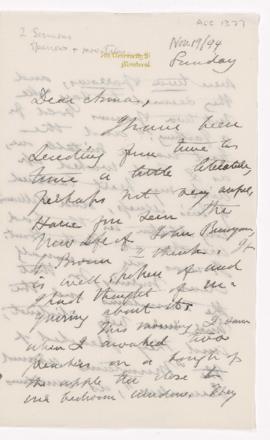 ACC 1327
2 Sermons
Sparrows +
Nov. 19/94
University St
Montreal
Sunday
Dear Anna,
I have been
sending from time to
time a little literature,
perhaps not very ample,
Have you seen the
New Life of John Bunyan,
by Brown I think. It
is well spoken of and
I had thought of in-
quiring about it.
This morning
when I awaked two
on a bough of
the apple tree close to
our bedroom window. They